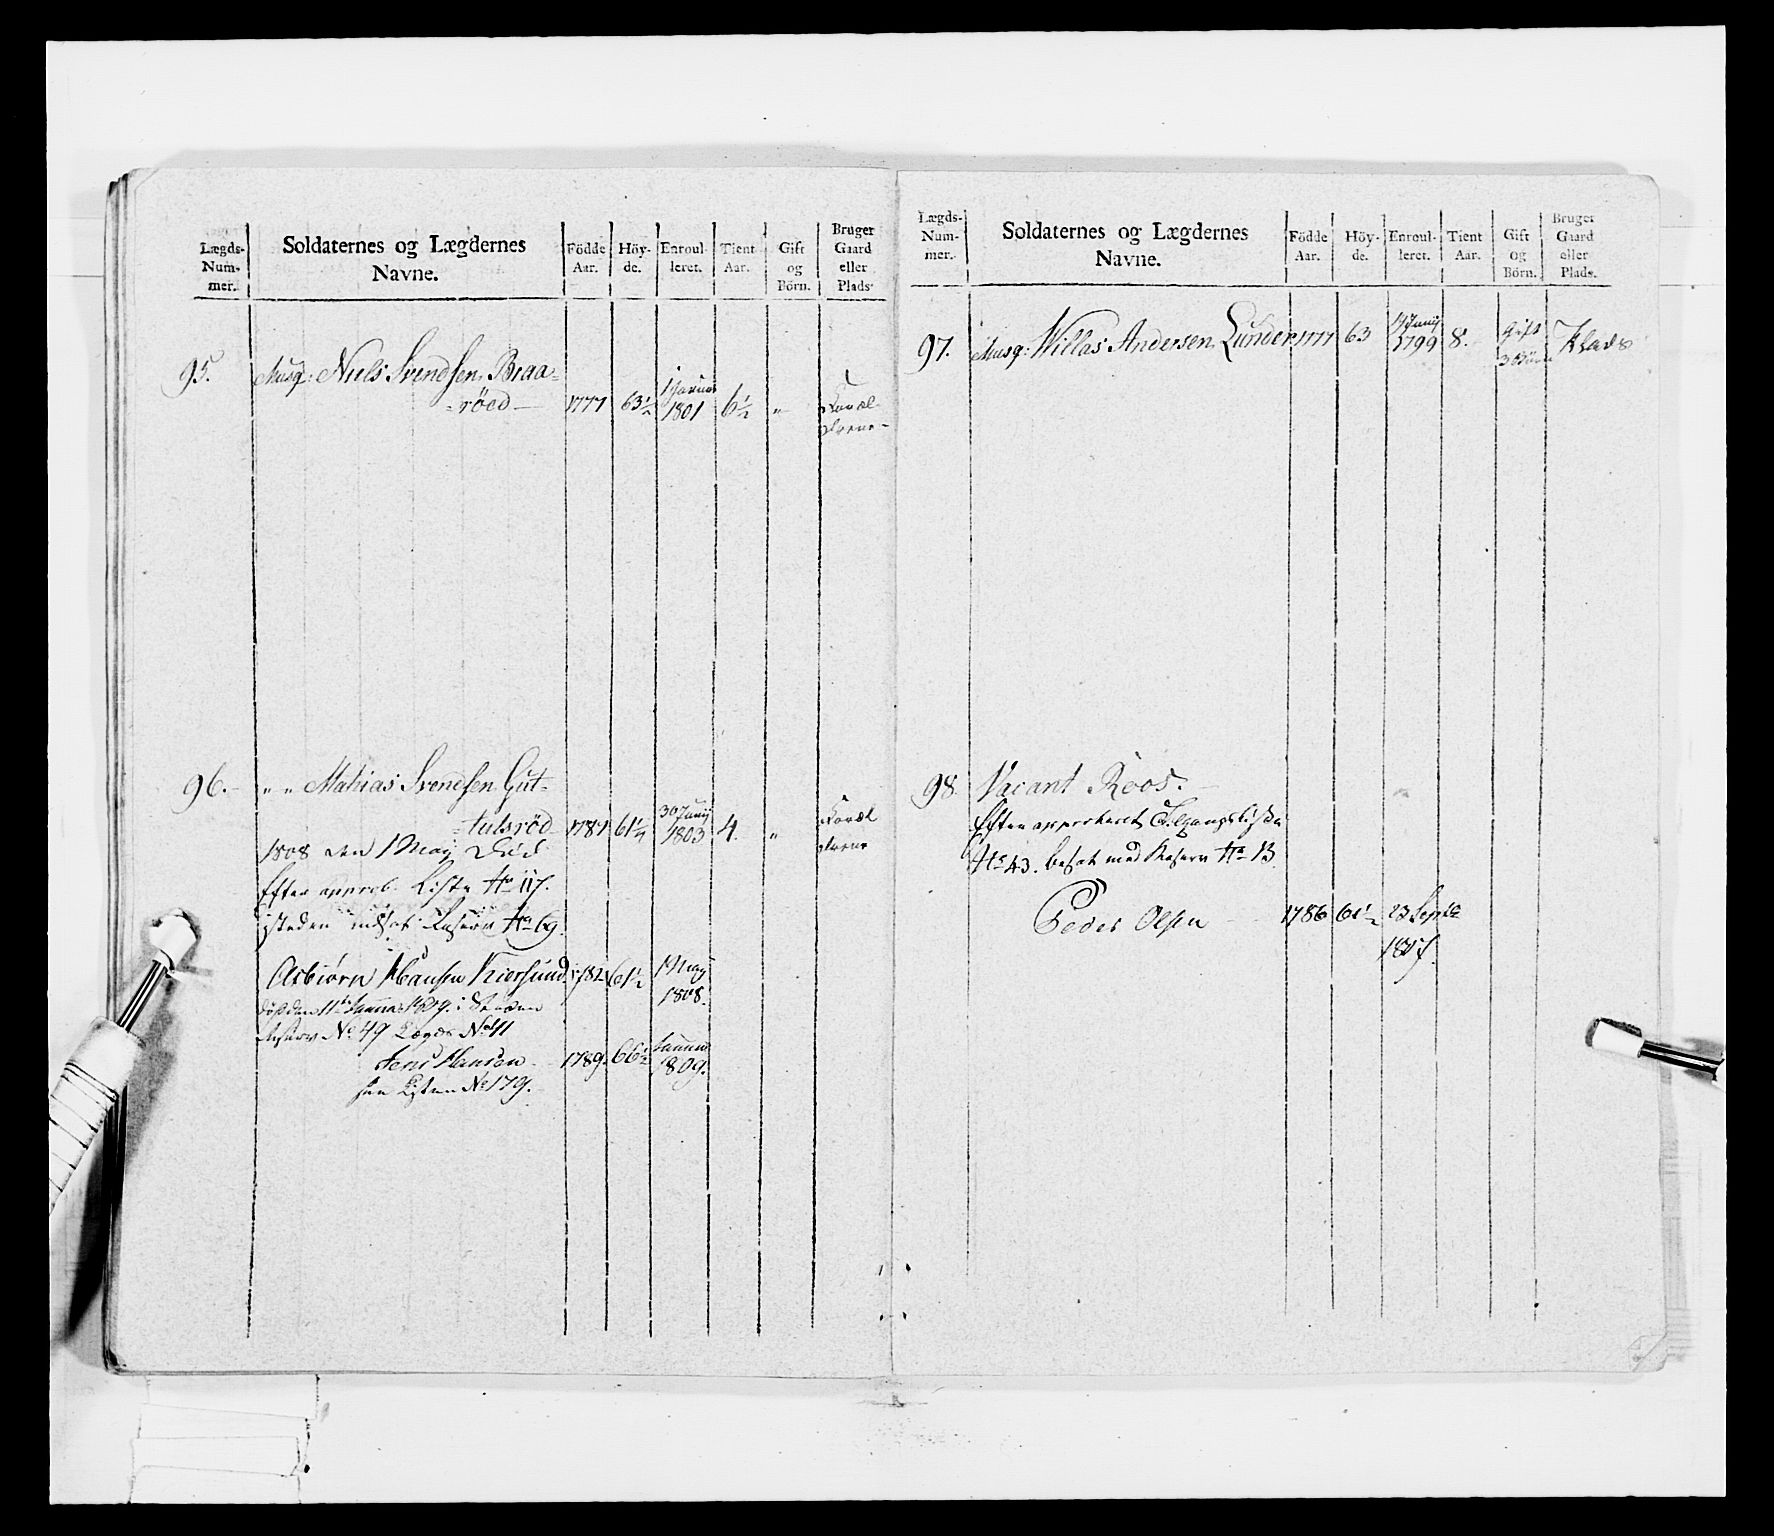 Lægds-
Num-
mer.
Soldaternes og Lægdernes
Navne.
Födde
Aar.
Höy-
de.
Enroul-
leret.
Tient
Aar.
Gift
og
Börn.
Bruger
Gaard
eller
Plads.
95.
Musq: Niels Svendsen Braa-
-röed - 1777 63½ 1801 6½ "
96. " " Mathias Svendsen Gut-
-tulsröd 1781 61¼ 30 Junij 1803 4. "
1808 den 1 May Död
Efter approb. Liste No 117.
isteden indsat Reserv No 69.
Asbiörn Hansen Kiersund 1782 61½ 1 May 1808.
död den 11te Januar 1809.
Reserv No 49 Lægds No 41
Jens Hansen 1789. 66½ Januar 1809.
see Listen No 179.
Lægds-
Num-
mer.
Soldaternes og Lægdernes
Navne.
Födde
Aar.
Höy-
de.
Enroul-
leret.
Tient
Aar.
Gift
og
Börn.
Bruger
Gaard
eller
Plads.
97. Musq: Willas Andersen Lunder 1777 63 Junij 1799 8. Gift
3 Börn Plads
98 Vacant Roos.
Efter approberet Afgangsliste
No 43. besat med Reserv No 13
Peder Olsen 1786 61½ 23 Septr
1807.